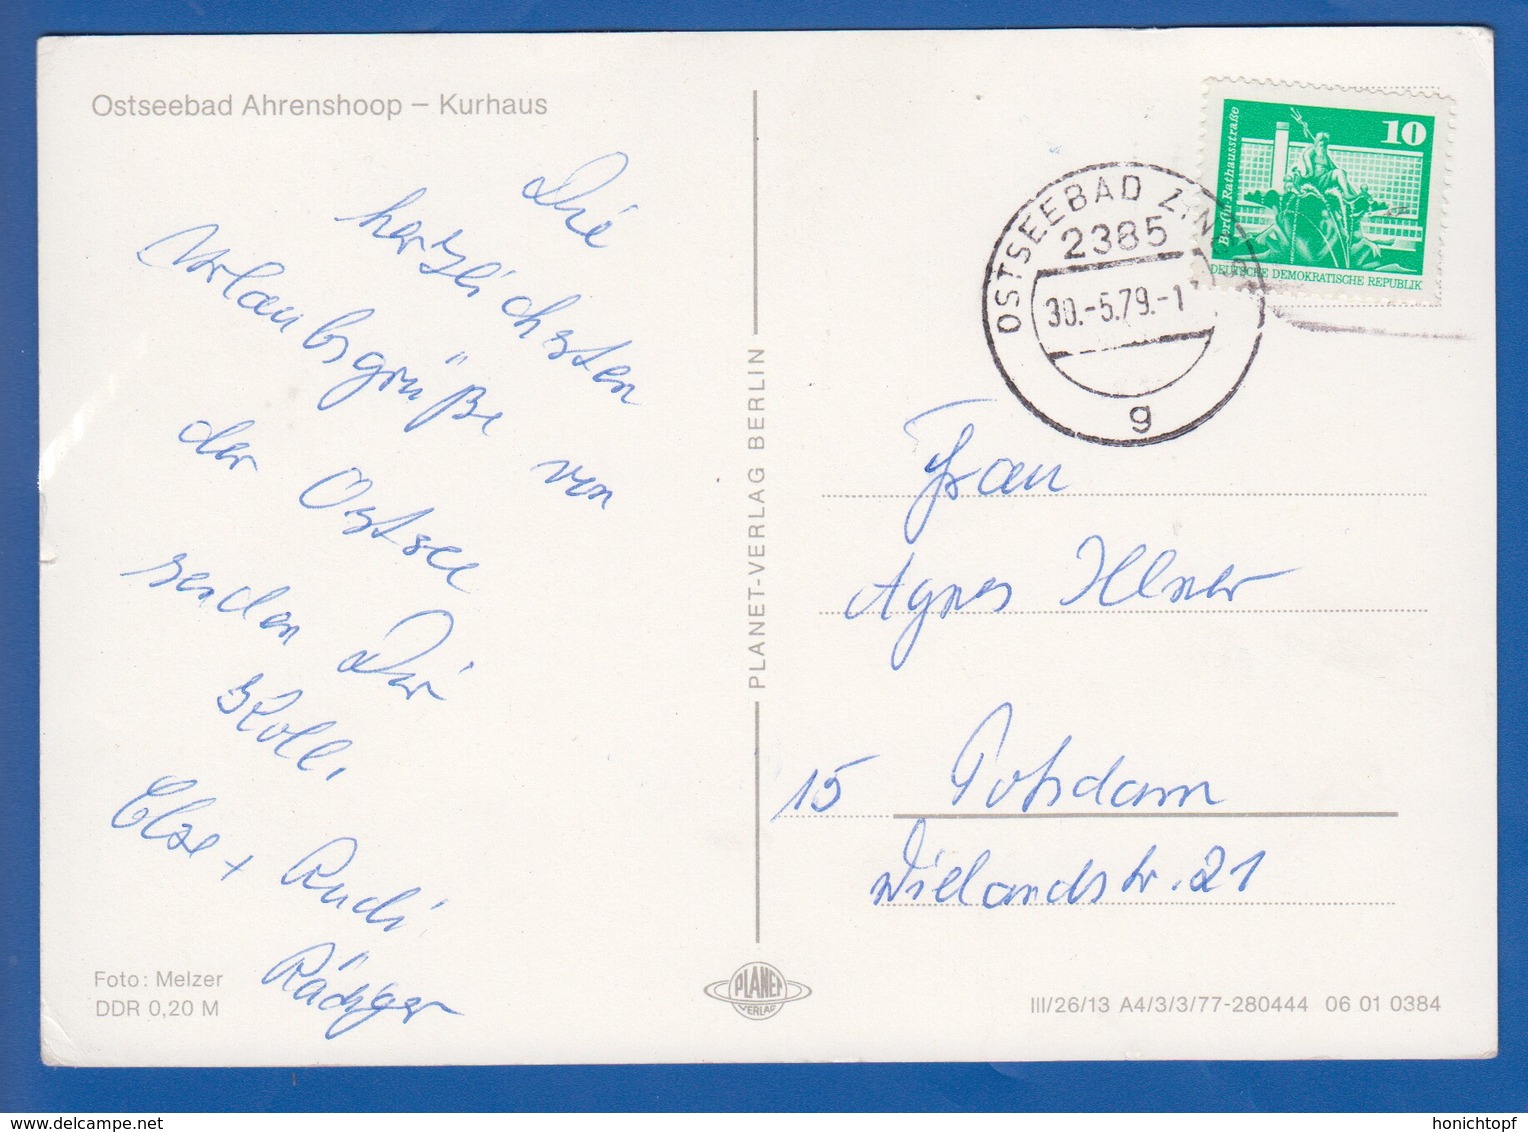 Ostseebad Ahrenshoop – Kurhaus
Die
herzlichsten
Urlaubsgrüße von
der Ostsee
senden Dir
Else + Rudi
PLANET-VERLAG BERLIN
10
Berlin, Rathausstraße
DEUTSCHE DEMOKRATISCHE REPUBLIK
OSTSEEBAD ZINGST
2385
30.-5.79.-1
g
Frau
Agnes
15 Potsdam
Wielandstr. 21
Foto: Melzer
DDR 0,20 M
PLANET
VERLAG
III/26/13 A4/3/3/77-280444 06 01 0384
www.delcampe.net
honichtopf